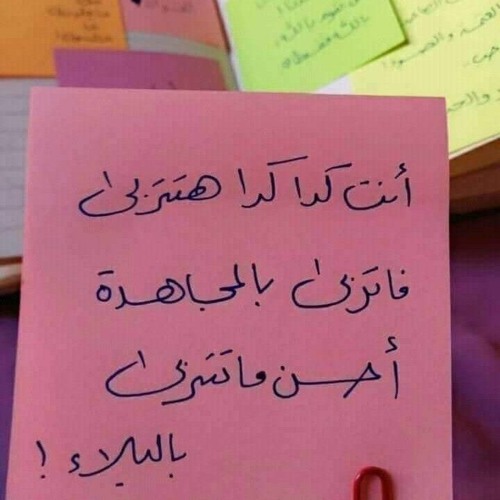 أنت كدا كدا هتتربى
فاتربى بالمجاهدة
أحسن ما تتربى
بالبلاء !